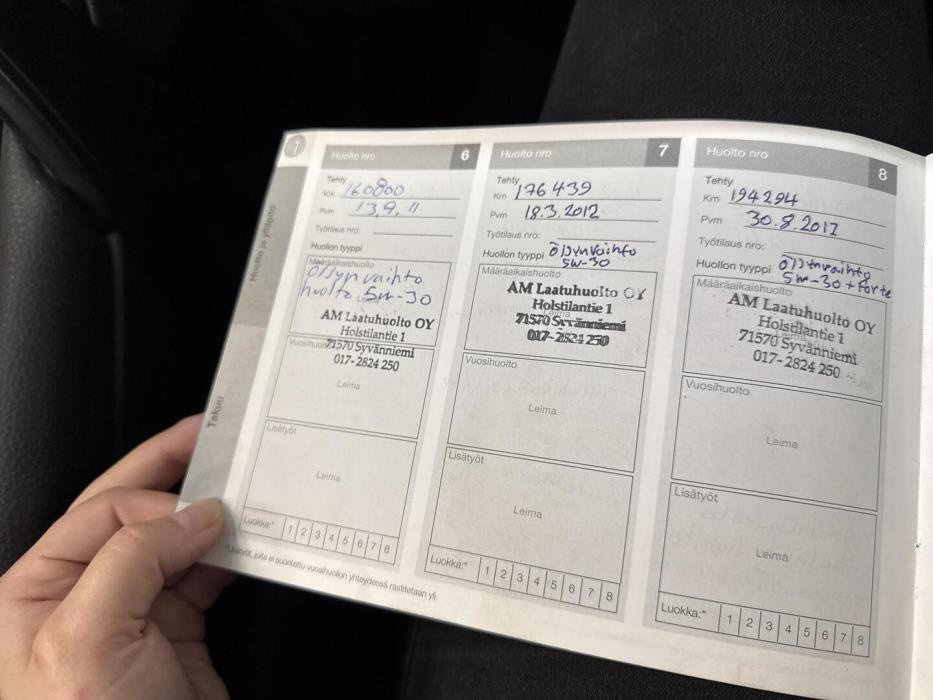 Huolto ja ylläpito
Takuu
Huolto nro 6
Tehty
Km 160800
Pvm 13.9.11
Työtilaus nro:
Huollon tyyppi
Määräaikaishuolto
öljyn vaihto
huolto 5w-30
AM Laatuhuolto OY
Holstilantie 1
71570 Syvänniemi
017-2824 250
Vuosihuolto
Leima
Lisätyöt
Leima
Luokka:* 1 2 3 4 5 6 7 8
*Lisätyöt, joita ei suoritettu vuosihuollon yhteydessä rastitetaan yli.
Huolto nro 7
Tehty
Km 176439
Pvm 18.3.2012
Työtilaus nro:
Huollon tyyppi öljynvaihto
5w-30
Määräaikaishuolto
AM Laatuhuolto OY
Holstilantie 1
Leima
71570 Syvänniemi
017-2824 250
Vuosihuolto
Leima
Lisätyöt
Leima
Luokka:* 1 2 3 4 5 6 7 8
Huolto nro 8
Tehty
Km 194294
Pvm 30.8.2012
Työtilaus nro:
Huollon tyyppi öljynvaihto
5w-30 + forte
Määräaikaishuolto
AM Laatuhuolto OY
Holstilantie 1
Leima
71570 Syvänniemi
017-2824 250
Vuosihuolto
Leima
Lisätyöt
Leima
Luokka:* 1 2 3 4 5 6 7 8